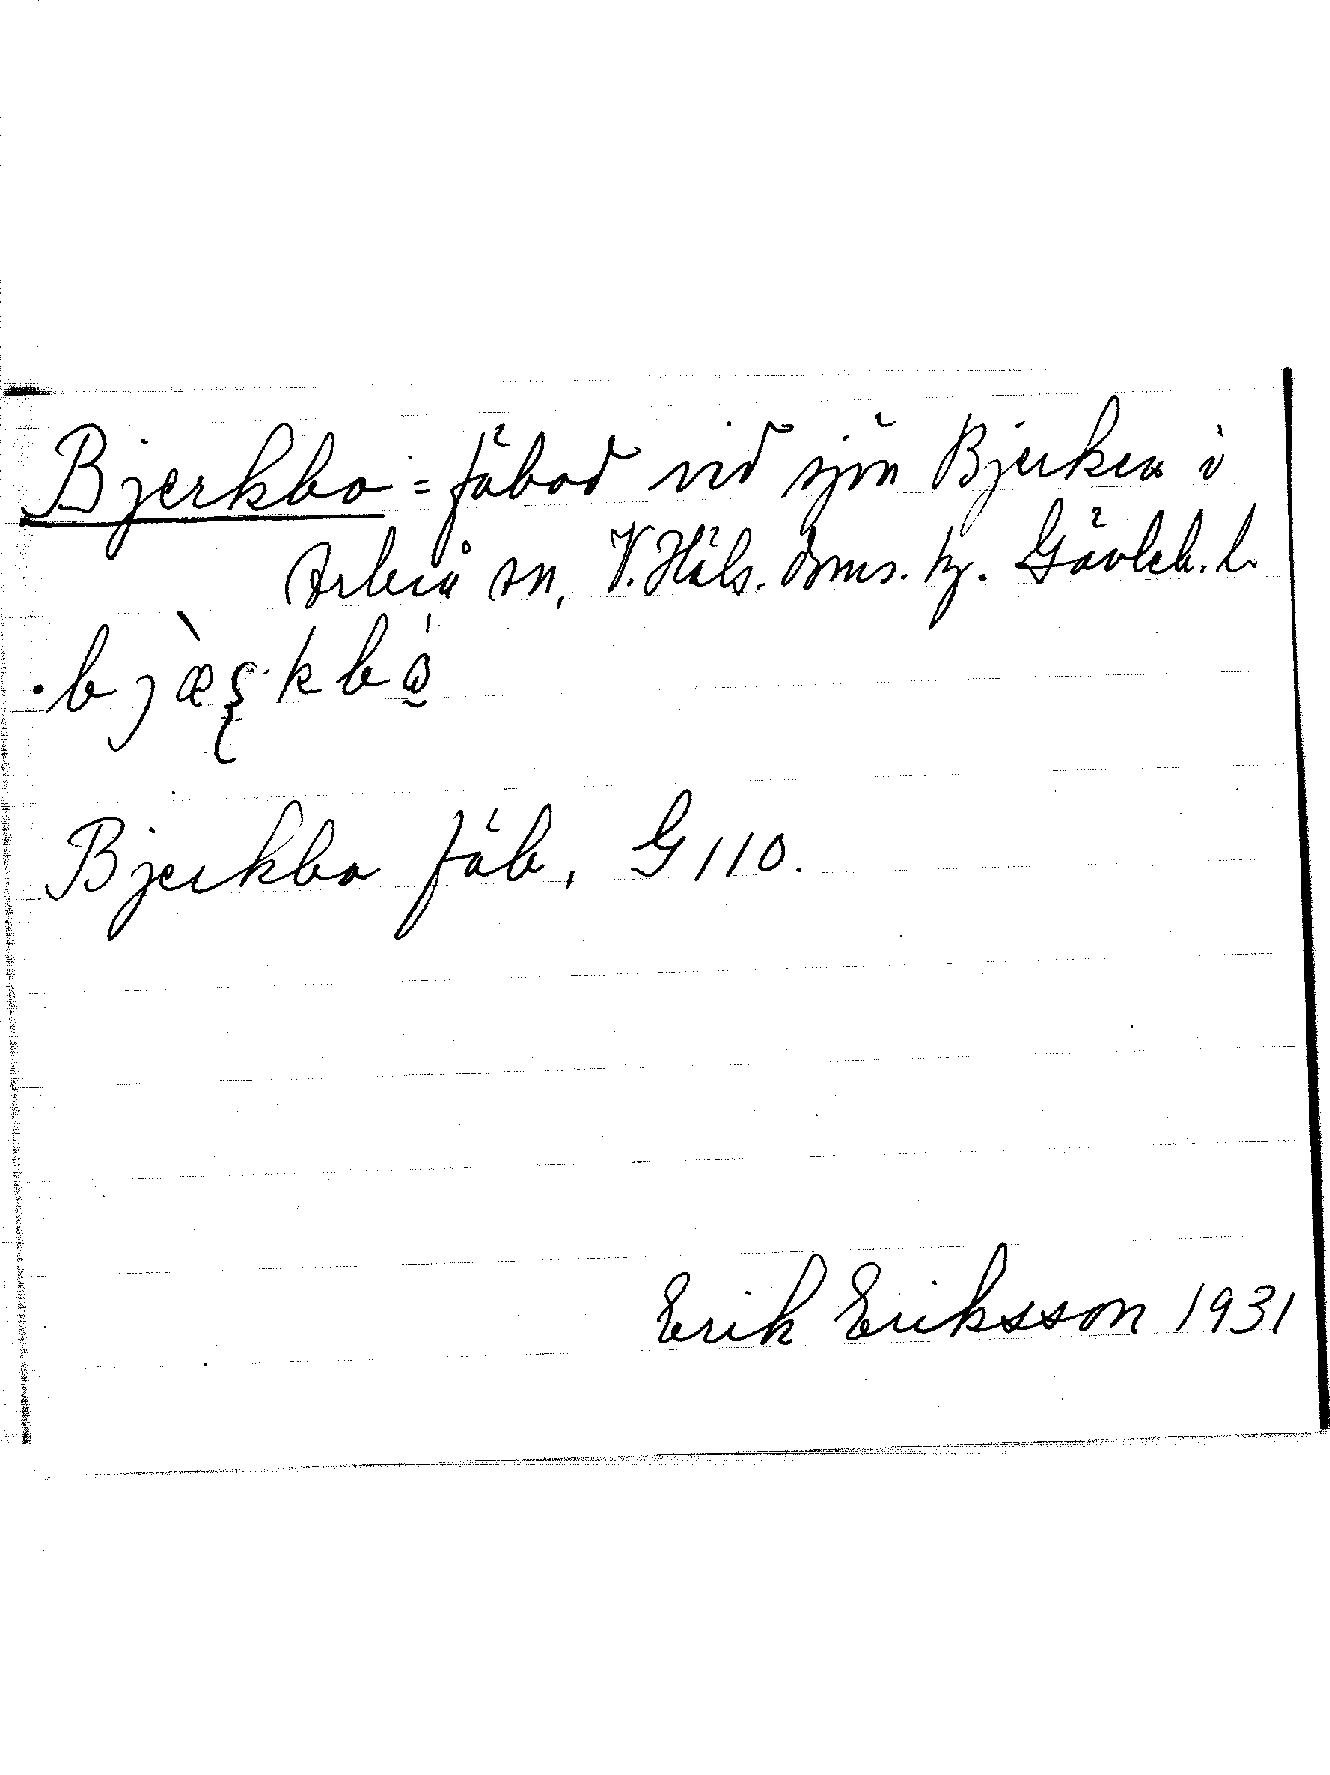 Bjerkbo = fäbod vid sjön Bjerken i
Arbrå sn, V. Häls. doms. tg. Gävleb. l.
Bjerkbo fäb, G 110.
Erik Eriksson 1931